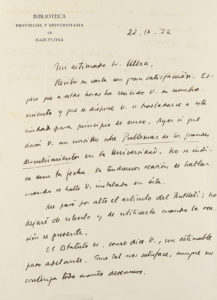 BIBLIOTECA
PROVINCIAL Y UNIVERSITARIA
DE
BARCELONA
22. IX. 32
Mi estimado Sr.
Recibo su carta con gran satisfacción. Es-
pero que a estas horas ha recibido V. su nombra-
miento y que se dispone V. a trasladarse a esta
ciudad para principio de curso. Ayer vi que
dará V. un cursillo sobre Problemas de los grandes
descubrimientos en la Universidad. No se indi-
ca aún la fecha. Ya tendremos ocasión de hablar
cuando se halle V. instalado en ésta.
No pasé por alto el artículo del Butlletí; no
dejaré de leerlo y de utilizarlo cuando la oca-
sión se presente.
El Estatuto es, como dice V., un estimable
paso adelante. Como tal nos satisface, aunque no
contenga todo cuanto deseamos.